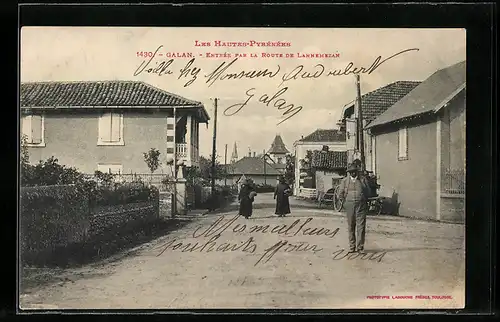 Les Hautes-Pyrénées
1430 - GALAN. - Entrée par la Route de Lannemezan
Villa hq Monsieur Audrubert
Galan
Mes meilleurs
souhaits pour vous
PHOTOTYPIE LABOUCHE FRÈRES TOULOUSE.